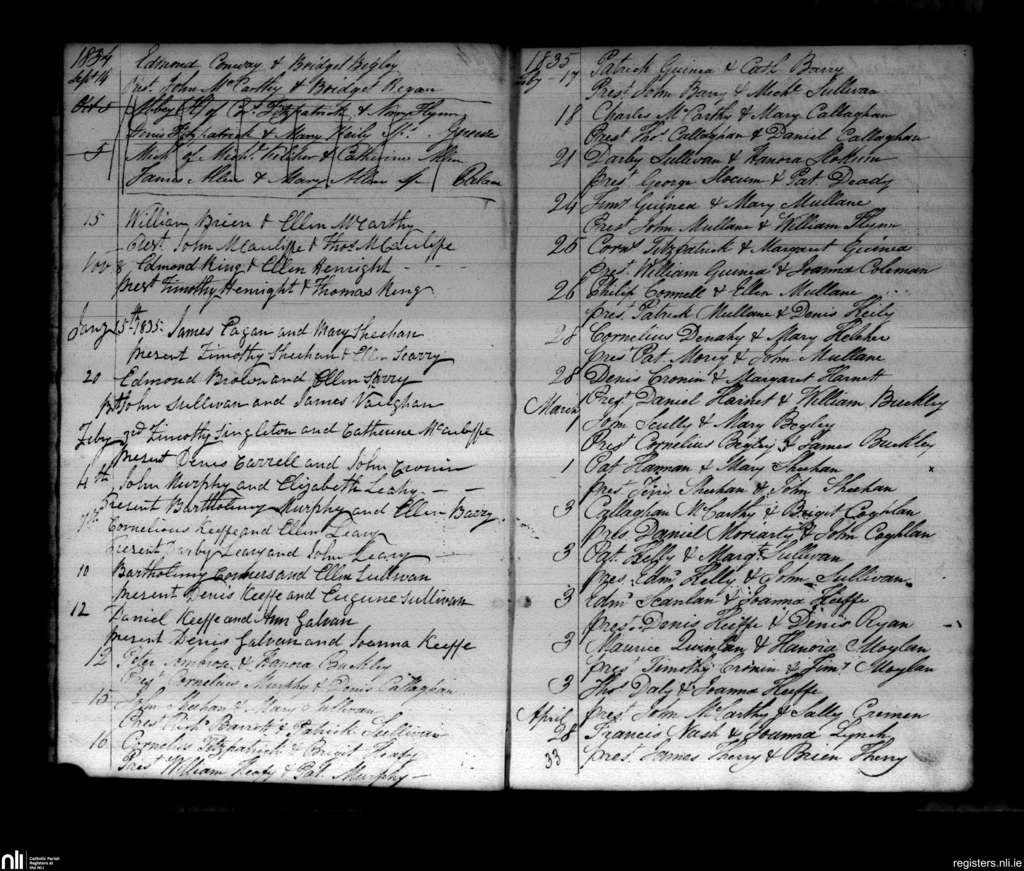 1834
Sept 14 Edmond Conway & Bridget Begley
Prest. John McCarthy & Bridget Regan
Octr Mary of Fitzpatrick & Nancy Flynn
Denis Fitzpatrick & Mary Keily Sps.
5 Michl of Michl Kelcher & Catherine Allen
James Allen & Mary Allen sp
15 William Brien & Ellen McCarthy
Prest. John McAuliffe & Thos McAuliffe
Nov 8 Edmond King & Ellen Henright
prest Timothy Henright & Thomas King
Jany 15th 1835. James Eagan and Mary Sheehan
present Timothy Sheehan & Ellen Scarry
20 Edmond Brown and Ellen Scarry
Pst John Sullivan and James Vaughan
Feby 3rd Timothy Singleton and Catherine McAuliffe
present Denis Carrell and John Cronin
4th John Murphy and Elizabeth Leahy
Present Bartholomy Murphy and Ellen Barry
7th Cornelious Keeffe and Ellen Leary
present Darby Leary and John Leary
10 Bartholomy Conners and Ellen Sullivan
present Denis Keeffe and Eugene Sullivan
12 Daniel Keeffe and Ann Galvan
present Denis Galvan and Joanna Keeffe
12 Peter & Hanora Buckley
Prest Cornelius Murphy & Denis Callaghan
15 John Meehan & Mary Sullivan
Prest Richd Barrott & Patrick Sullivan
16 Cornelius Fitzpatrick & Brigit Heafy
Prest William Heafy & Pat. Murphy
1835
Feby 17 Patrick Guinea & Cath Barry
Prest John Barry & Michl Sullivan
18 Charles McCarthy & Mary Callaghan
Prest Thos Callaghan & Daniel Callaghan
21 Darby Sullivan & Hanora
prest George Slocum & Pat. Deady
24 Timy Guinea & Mary Mullane
Prest John Mullane & William Flynn
25 Corns Fitzpatrick & Margaret Guinea
Prest William Guinea & Joanna Coleman
26 Philip Connell & Ellen Mullane
prest Patrick Mullane & Denis Keily
28 Cornelius Denahy & Mary Keleher
prest Pat. Morey & John Mullane
28 Denis Cronin & Margaret Harnett
Prest Daniel Harnet & William Buckley
March
1 John Scully & Mary Begley
Prest Cornelius Begley & James Buckley
1 Pat Hannan & Mary Sheehan
prest Jerry Sheehan & John Sheehan
3 Callaghan McCarthy & Brigit Coghlan
pres Daniel Moriarty & John Coghlan
3 Pat. Kelly & Margt Sullivan
pres. Edmd Kelly & John Sullivan
3 Edmd Scanlan & Joanna Keeffe
prest. Denis Keeffe & Denis Ryan
3 Maurice Quinlan & Hanora Moylan
prest Timothy Cronin & Timy Moylan
3 Thos Daly & Joanna Keeffe
prest John McCarthy & Sally Cremen
April
28 Francis Nash & Joanna Lynch
33 prest James Therry & Brien Therry
nli Catholic Parish
Registers at
the NLI
registers.nli.ie